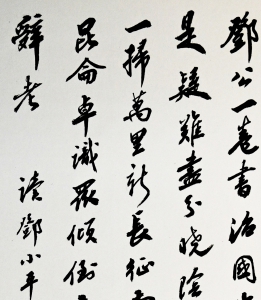 鄧公一卷書治國
是疑難盡分曉陰
一掃萬里新長征
昆侖卓識眾傾倒
辭老　讀鄧小平